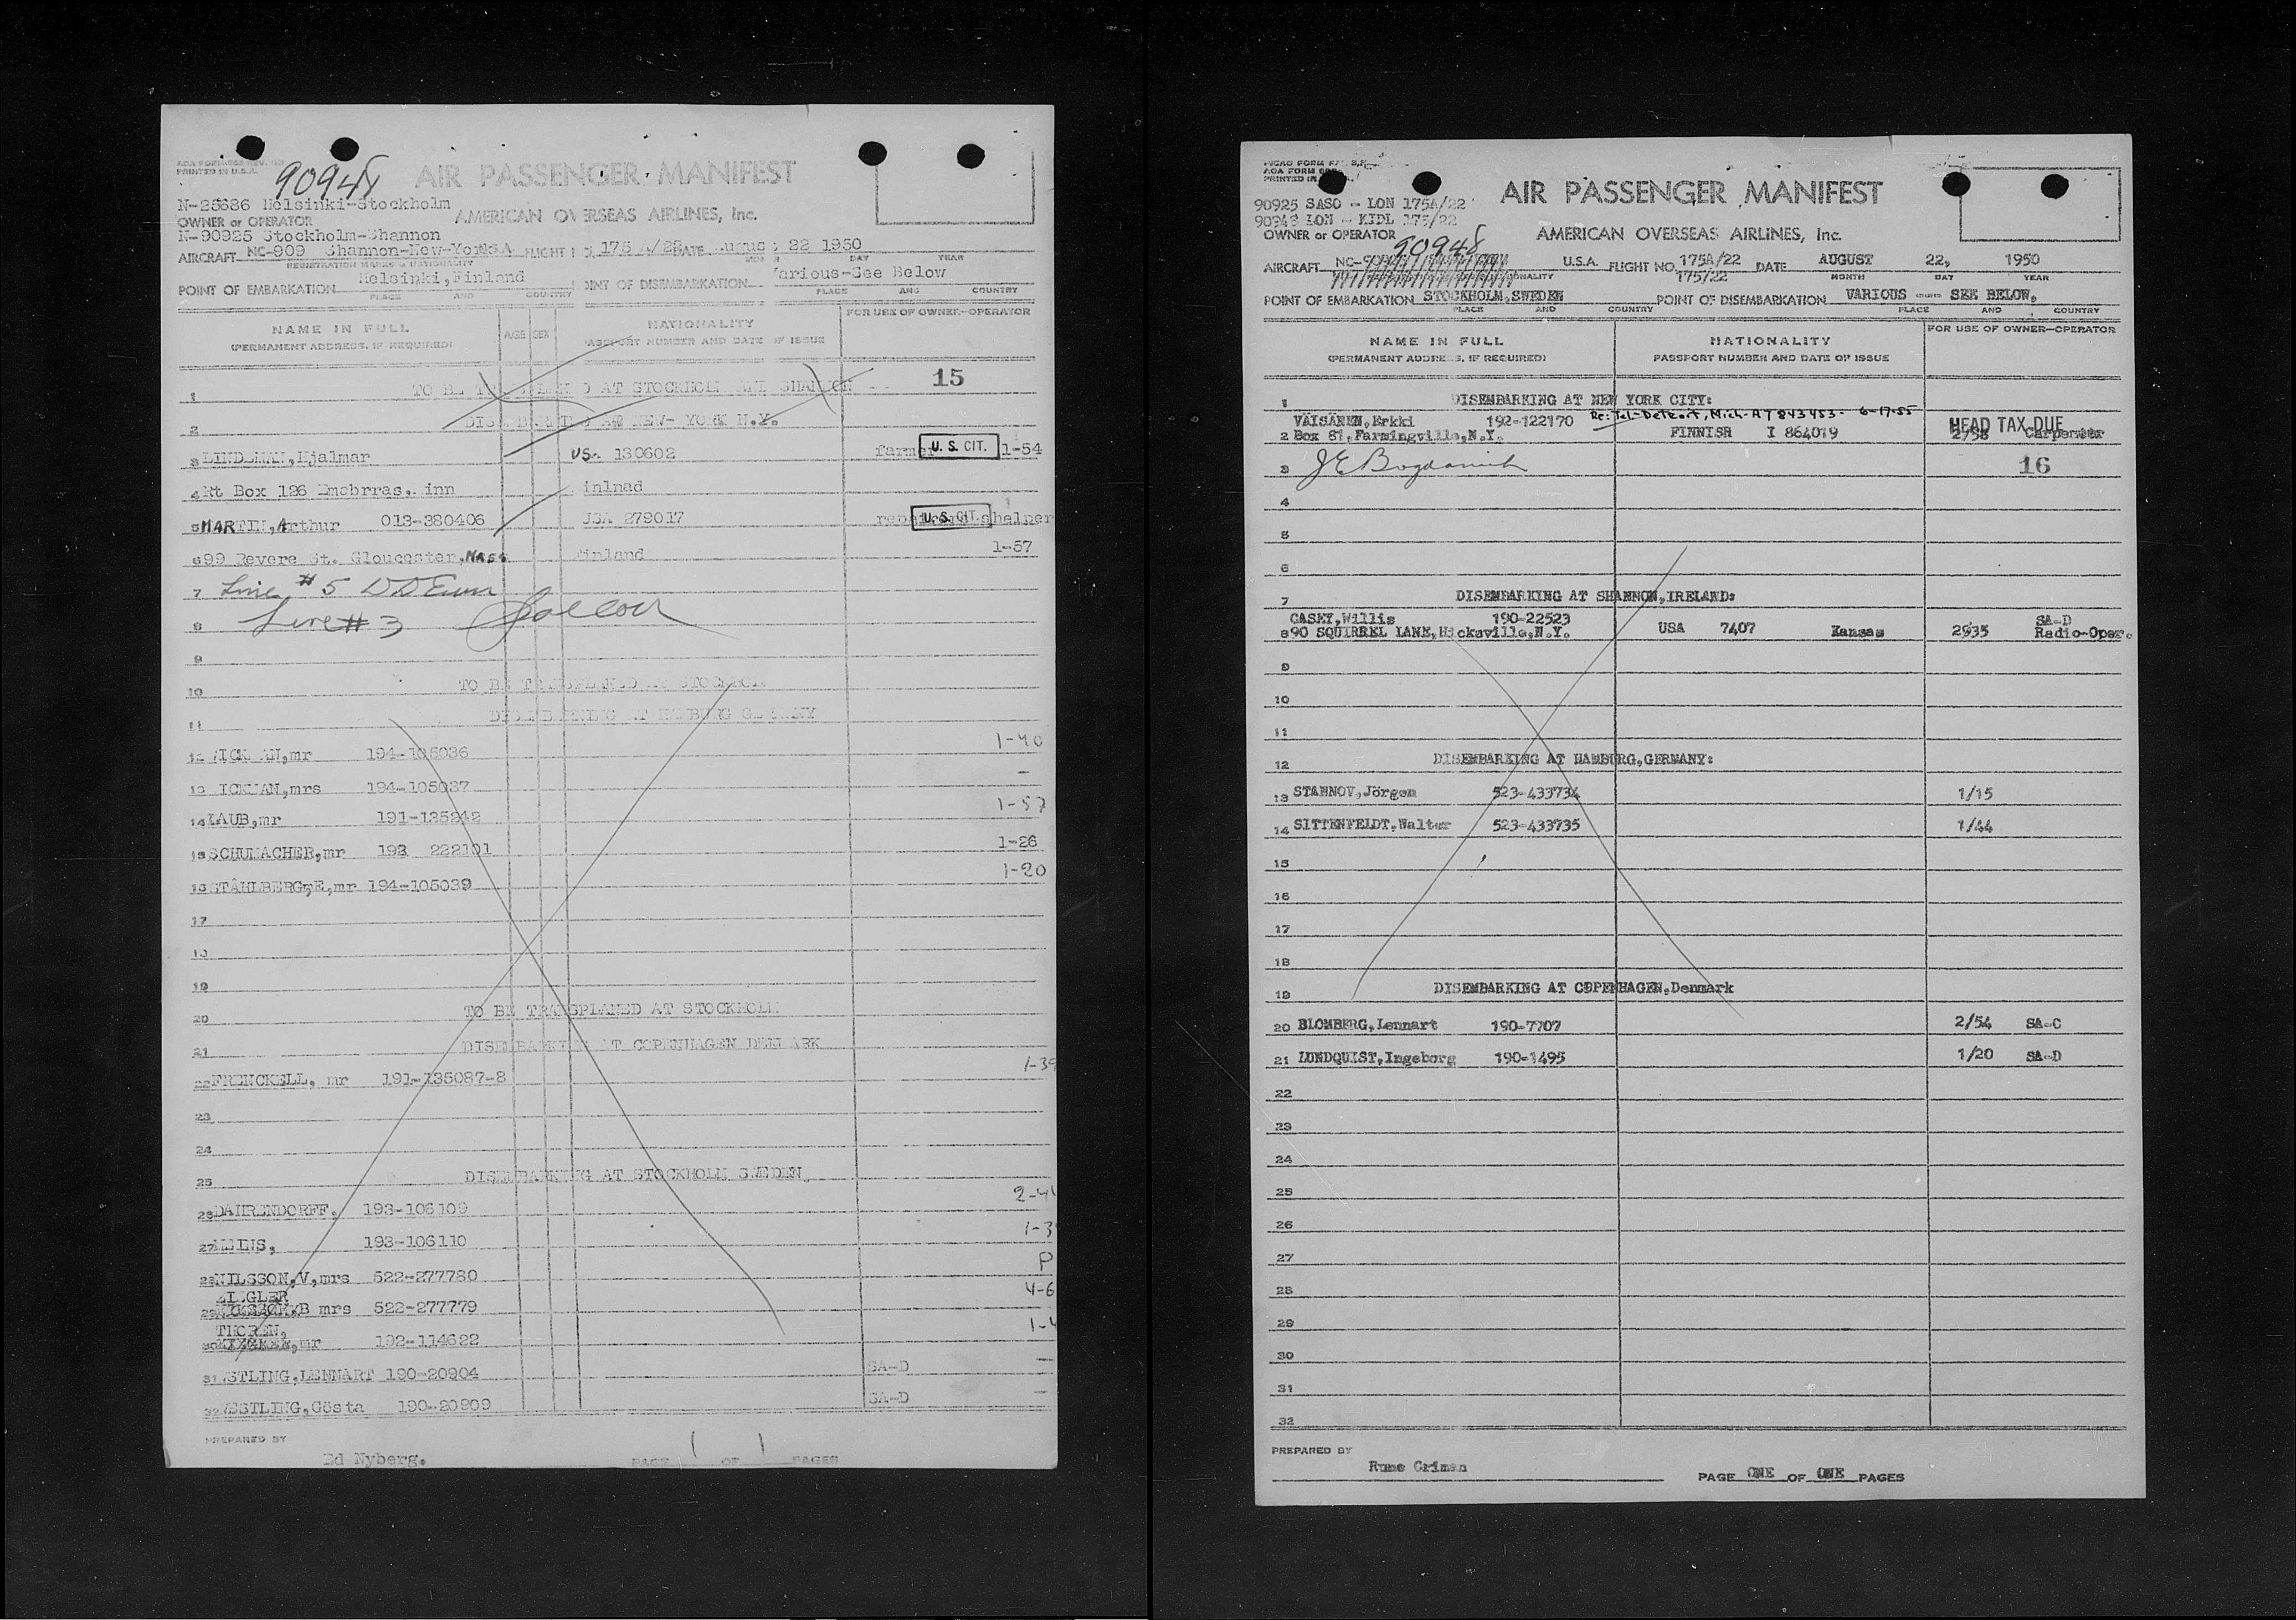 90948
AIR PASSENGER MANIFEST
PRINTED IN U.S.A.
N-25686 Helsinki-Stockholm
OWNER or OPERATOR
AMERICAN OVERSEAS AIRLINES, Inc.
N-90925 Stockholm-Shannon
AIRCRAFT NC-909 Shannon-New-York FLIGHT 175 A/22 DATE August 22 1950
DAY YEAR
Helsinki,Finland Various-See Below
POINT OF EMBARKATION POINT OF DISEMBARKATION
PLACE AND COUNTRY PLACE AND COUNTRY
NAME IN FULL AGE SEX NATIONALITY FOR USE OF OWNER-OPERATOR
(PERMANENT ADDRESS, IF REQUIRED) PASSPORT NUMBER AND DATE OF ISSUE
1 TO BE AT STOCKHOLM AND SHANNON 15
2 NEW-YORK N.Y.
3 LINDEMAN,Hjalmar 130602 farmer U.S. CIT. 1-54
4 Rt Box 126
5 MARTIN,Arthur 013-380406 USA 279017 U.S. CIT.
6 99 Revere St. Gloucester,Mass Finland 1-57
7 Line #5
8 Line #3
9
10 TO BE TRANSPLANED AT STOCKHOLM
11 DISEMBARKING AT HAMBURG GERMANY
12 WICKMAN,mr 194-105036 1-40
13 WICKMAN,mrs 194-105037 -
14 LAUB,mr 191-135242 1-57
15 SCHUMACHER,mr 193 222101 1-26
16 STÅHLBERG,E,mr 194-105039 1-20
17
18
19
20 TO BE TRANSPLANED AT STOCKHOLM
21 DISEMBARKING AT COPENHAGEN DENMARK
22 FRENCKELL, mr 191-135087-8 1-39
23
24
25 DISEMBARKING AT STOCKHOLM SWEDEN
26 DAHRENDORFF, 193-106109 2-4
27 193-106110 1-3
28 NILSSON,V,mrs 522-277780 P
ZIEGLER
29 B mrs 522-277779 4-6
THOREN,
30 mr 192-114622
31 LENNART 190-20904 SA-D -
32 Gösta 190-20909 SA-D -
PREPARED BY
Ed Nyberg. PAGE 1 OF 1 PAGES
AIR PASSENGER MANIFEST
90925 SASO - LON 175A/22
90948 LON - KIDL 175/22
OWNER or OPERATOR 90948 AMERICAN OVERSEAS AIRLINES, Inc.
AIRCRAFT U.S.A. FLIGHT NO. 175A/22 DATE AUGUST 22, 1950
175/22 MONTH DAY YEAR
POINT OF EMBARKATION STOCKHOLM,SWEDEN POINT OF DISEMBARKATION VARIOUS ---- SEE BELOW.
PLACE AND COUNTRY PLACE AND COUNTRY
NAME IN FULL NATIONALITY FOR USE OF OWNER—OPERATOR
(PERMANENT ADDRESS, IF REQUIRED) PASSPORT NUMBER AND DATE OF ISSUE
1 DISEMBARKING AT NEW YORK CITY:
VÄISÄNEN,Erkki 192-122170 Re: Tel-Detroit, Mich-A7 843453- 6-17-55 HEAD TAX DUE
2 Box 81,Farmingville,N.Y. FINNISH I 864019 2/58 Carpenter
3 16
4
5
6
7 DISEMBARKING AT SHANNON,IRELAND:
CASEY,Willis 190-22523 SA-D
8 90 SQUIRREL LANE,Hicksville,N.Y. USA 7407 Kansas 2935 Radio-Oper.
9
10
11
12 DISEMBARKING AT HAMBURG,GERMANY:
13 STANNOV,Jörgen 523-433734 1/15
14 SITTENFELDT,Walter 523-433735 1/44
15
16
17
18
19 DISEMBARKING AT COPENHAGEN,Denmark
20 BLOMBERG,Lennart 190-7707 2/54 SA-C
21 LUNDQUIST,Ingeborg 190-1495 1/20 SA-D
22
23
24
25
26
27
28
29
30
31
32
PREPARED BY
Rune Criman PAGE ONE OF ONE PAGES